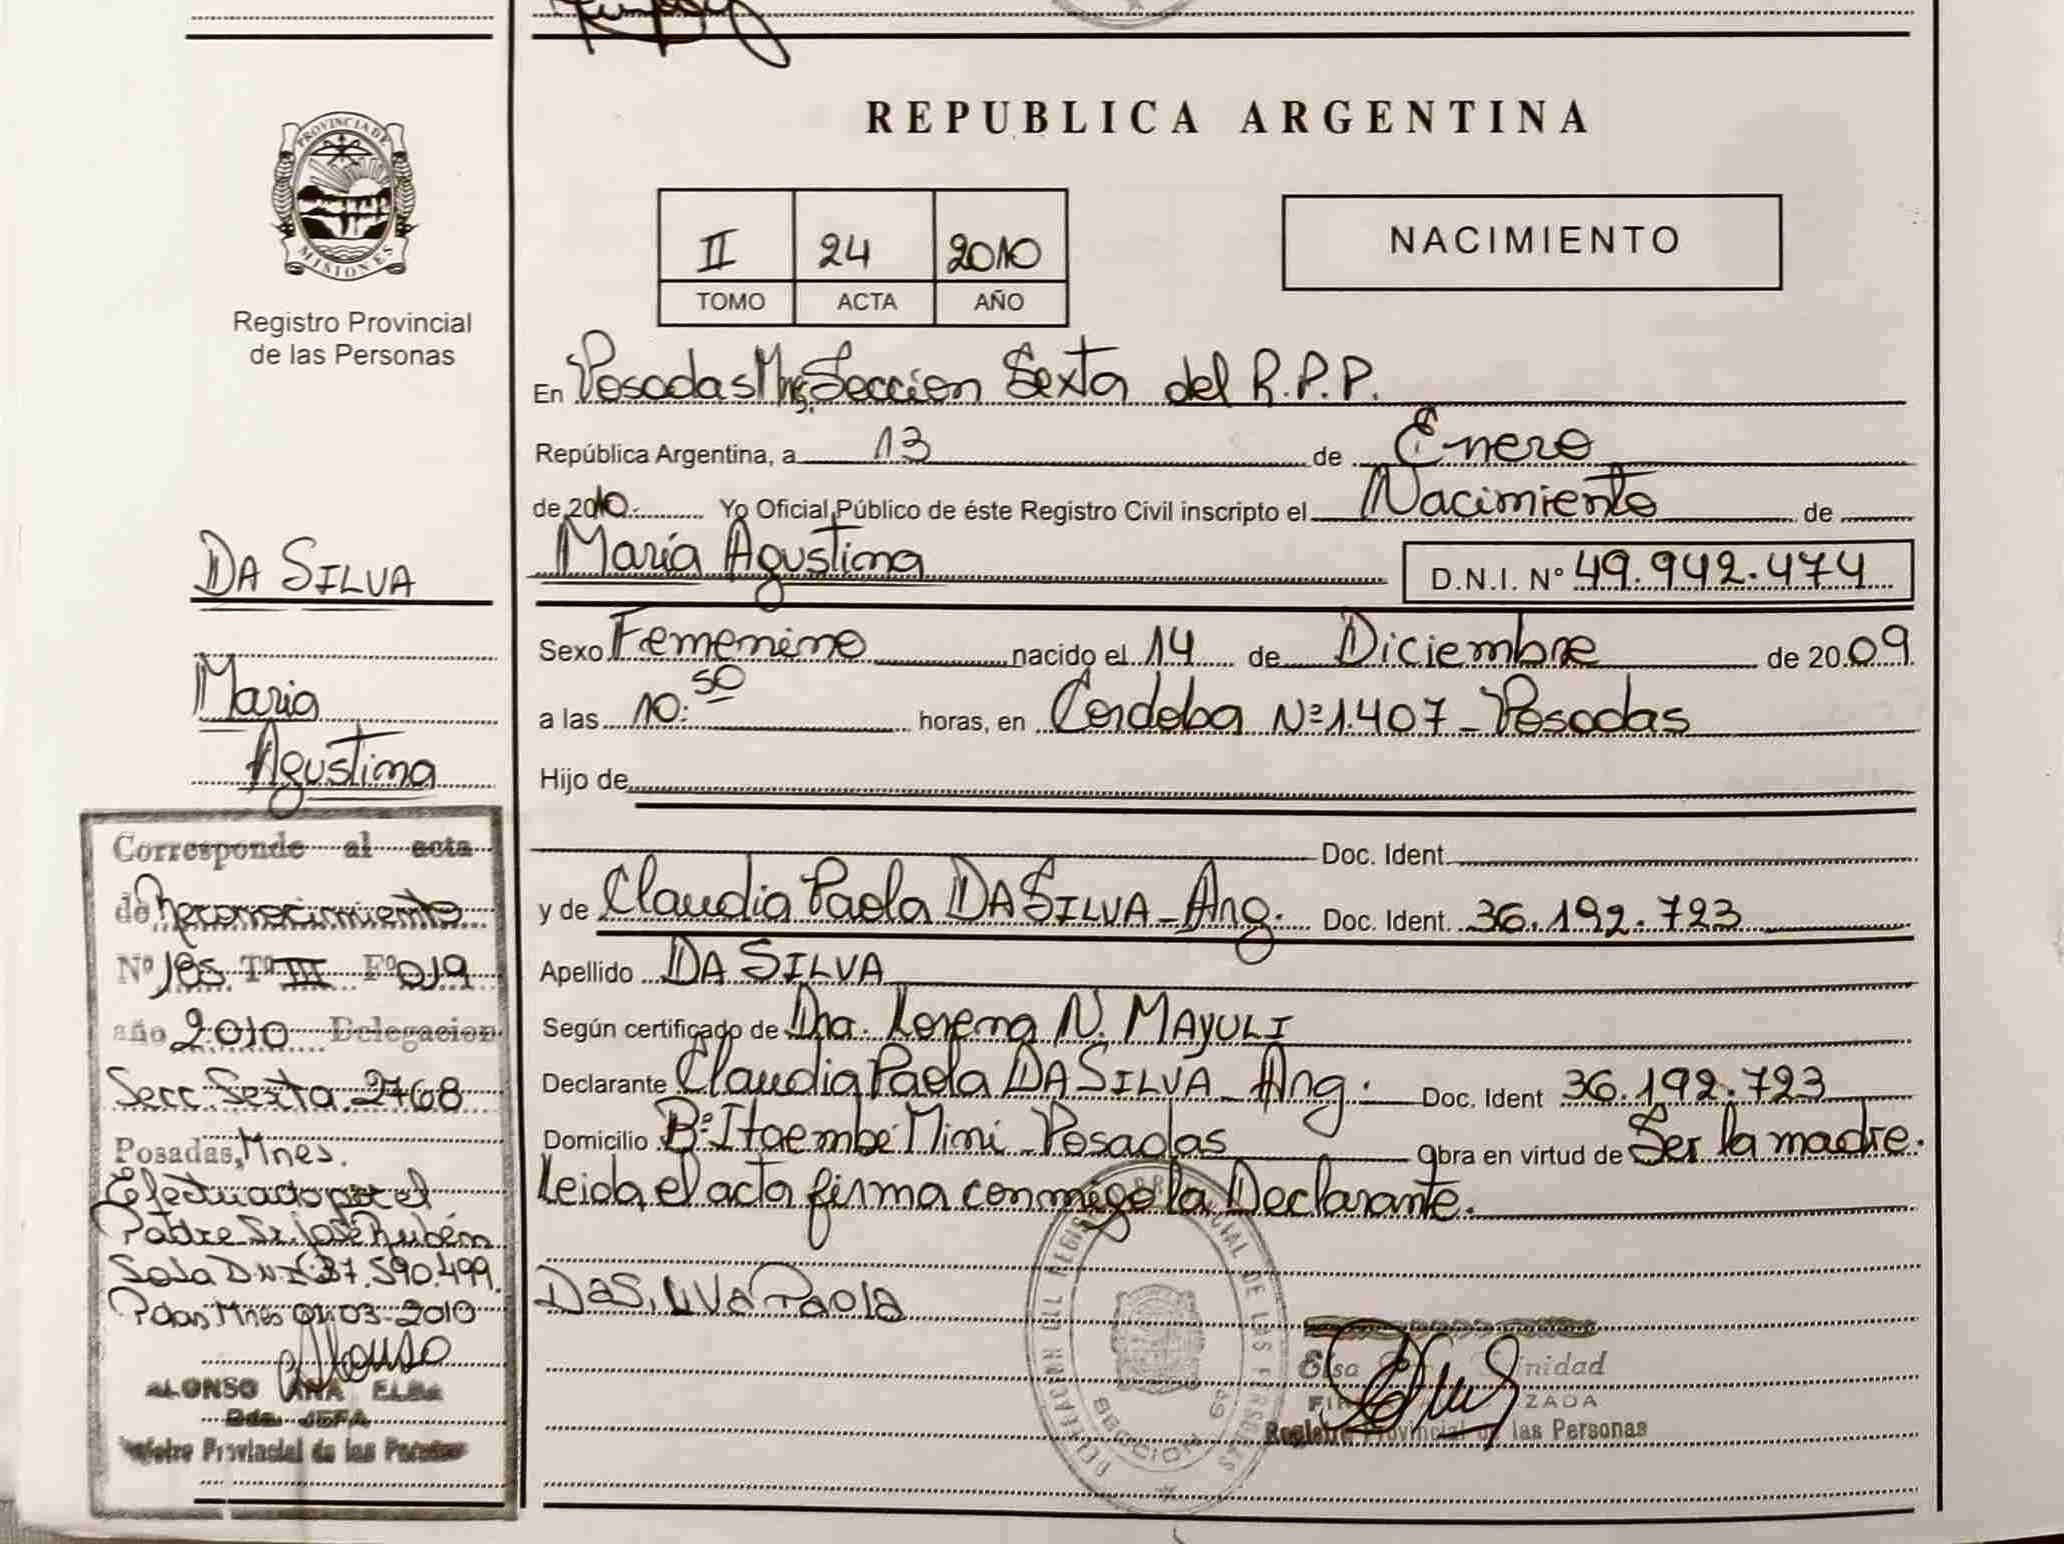 REPUBLICA ARGENTINA
PROVINCIA DE
MISIONES
Registro Provincial
de las Personas
II 24 2010
TOMO ACTA AÑO
NACIMIENTO
En Posadas Mnes. Seccion Sexta del R.P.P.
República Argentina, a 13 de Enero
de 2010.- Yo Oficial Público de éste Registro Civil inscripto el Nacimiento de
María Agustina D.N.I. Nº 49.942.474
Sexo Femenino nacido el 14 de Diciembre de 2009
a las 10:50 horas, en Cordoba Nº 1.407 - Posadas
Hijo de
Doc. Ident.
y de Claudia Paola DA SILVA - Arg. Doc. Ident. 36.192.723
Apellido DA SILVA
Según certificado de Dra. Lorena N. MAYULI
Declarante Claudia Paola DA SILVA - Arg. Doc. Ident 36.192.723
Domicilio Bº Itaembé Miní - Posadas Obra en virtud de Ser la madre.
Leida el acta firma conmigo la Declarante.
DaSiLVa Paola
Elsa
Registro Provincial de las Personas
DA SILVA
Maria
Agustina
Corresponde al acta
de Reconocimiento
Nº 185 Tº III Fº 019
año 2010 Delegacion
Secc. Sexta 2768
Posadas, Mnes.
Efectuado por el
Padre Sr. José Rubén
Sosa D.N.I. 37.590.499.
Pdas Mnes 01-03-2010
ALONSO ANA ELBA
JEFA
Registro Provincial de las Personas